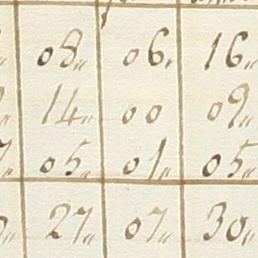 08〃 06〃 16〃
14〃 00 09〃
05〃 01〃 05〃
27〃 07〃 30〃